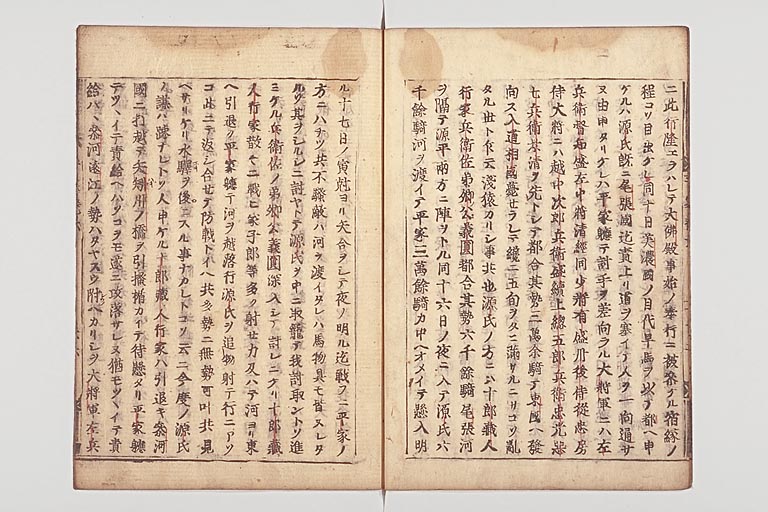 ニ此行隆エラハレテ大佛殿事始ノ奉行ニ被參ケル宿縁ノ
程コソ目出ケレ同十日美濃國ノ目代早馬ヲ以テ都ヘ申
ケルハ源氏既ニ尾張國迄責上リ道ヲ塞イテ人ヲ一向通サ
ヌ由申タリケレハ平家軈テ討手ヲ差向ラル大將軍ニハ左
兵衛督知盛左中將清經同少將有盛丹後侍從忠房
侍大將ニハ越中次郎兵衛盛續上總五郎兵衛忠光悪
七兵衛景清ヲ先トシテ都合其勢三萬余騎テ東國ヘ發
向ス入道相國薨セラレテ纔ニ五旬ヲタニ滿サルニサコソ亂
タル世ト乍云淺猿カリシ事共也源氏ノ方ニハ十郎藏人
行家兵衛佐弟卿公義圓都合其勢六千餘騎尾張河
ヲ隔テ源平兩方ニ陣ヲトル同十六日ノ夜ニ入テ源氏六
千餘騎河ヲ渡イテ平家三萬餘騎カ中ヘオメイテ懸入明
ル十七日ノ寅尅ヨリ矢合ヲシテ夜ノ明ル迄戰ヲニ平家ノ
方ニハチツ共不騒敵ハ河ヲ渡イタレハ馬物具モ皆ヌレタ
ルソ其ヲシルシニ討ヤトテ源氏ヲ中ニ取籠テ我討取ントソ進
ミケル兵衛佐ノ弟卿公義圓深入シテ討レニケリ十郎藏
人行家散々ニ戰ヒ家子郎等多ク射セ力及ハテ河ヨリ東
ヘ引退ク平家軈テ河ヲ越落行源氏ヲ追物射テ行ニアソ
コ此ニテ返シ合セテ防戰トイヘ共多勢ニ無勢可叶共見
ヘサリケリ水驛ヲ後ニスル事ナカレトコソ云ニ今度ノ源氏
ノ謀ハ踈ナレトソ人申ケル十郎藏人行家ハ引退キ參河
國ニ打越テ矢矧川ノ橋ヲ引掻楯カイテ待懸タリ平家軈
テツヽイテ責給ヘハソコヲモ遂ニ攻落サレヌ猶モツヽイテ責
給ハヽ參河遠江ノ勢ハタヤスウ附ヘカリシヲ大將軍左兵